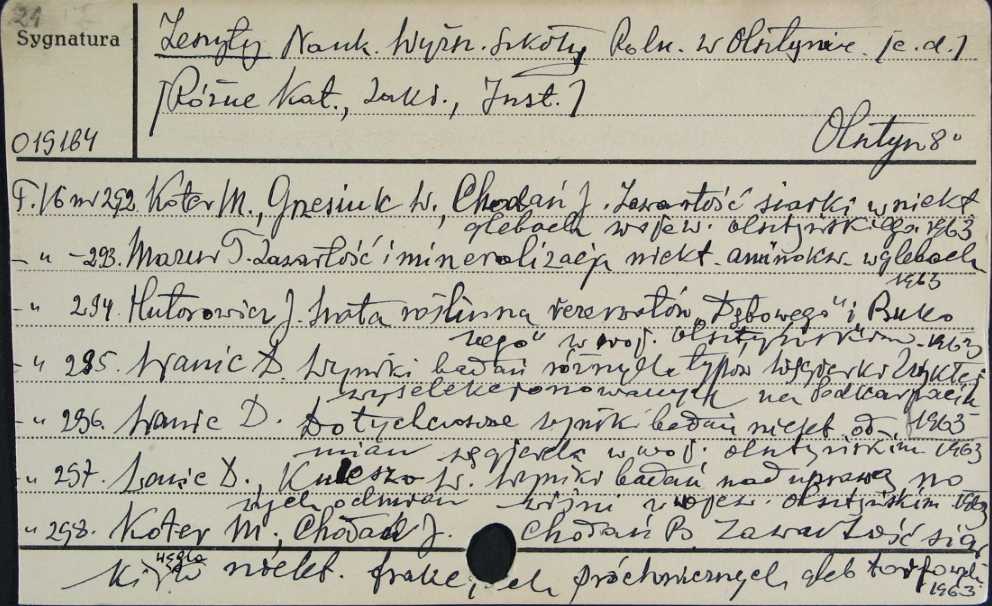 21
Sygnatura
Zeszyty Nauk. Wyższ. Szkoły Roln. w Olsztynie. [c.d.]
[Różne Kat., Zakł., Inst.]
019184
Olsztyn 8°
T. 16 nr 292. Koter M., Grzesiuk W., Chodań J. Zawartość siarki w niekt
glebach wojew. olsztyńskiego 1963
-"- 293. Mazur T. Zawartość i mineralizacja niekt. aminokw. w glebach
1963
-"- 294. Hutorowicz J. Szata roślinna rezerwatów „Dębowego" i Buko
wego" w woj. olsztyńskim 1963
-"- 295. Iwanic D. Wyniki badań różnych typów węgierki zwykłej
wyselekcjonowanych na Podkarpaciu
1963
-"- 296. Iwanic D. Dotychczasowe wyniki badań niekt. od-
mian węgierek w woj. olsztyńskim 1963
-"- 297. Iwanic D., Kulesza W. Wyniki badań nad uprawą no
wych odmian wiśni w wojew. olsztyńskim 1963
" 298. Koter M., Chodań J. Chodań B. Zawartość siar
ki węgla niekt. frakcjach próchnicznych gleb torfowych
1963